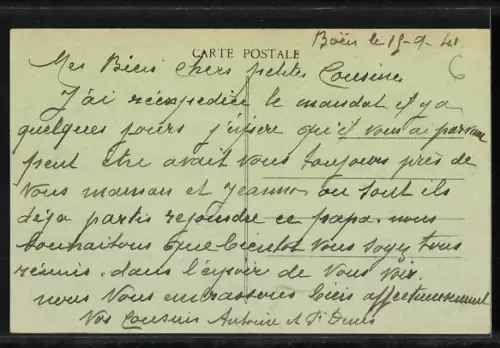 Boën le 15-9-41
CARTE POSTALE
6
Mes Biens chers petits Cousins
J'ai réexpediée le mandat il y a
quelques jours j'éspère qu'il vous ai parvenu
peut être avait vous toujours près de
vous maman et Jeanne ou sont ils
déja partis rejoindre ce papa. nous
souhaitons que bientot vous soyy tous
réunis. dans l'éspoir de vous voir.
nous vous embrassons bien affectueusement
Vos Cousins Antoine et